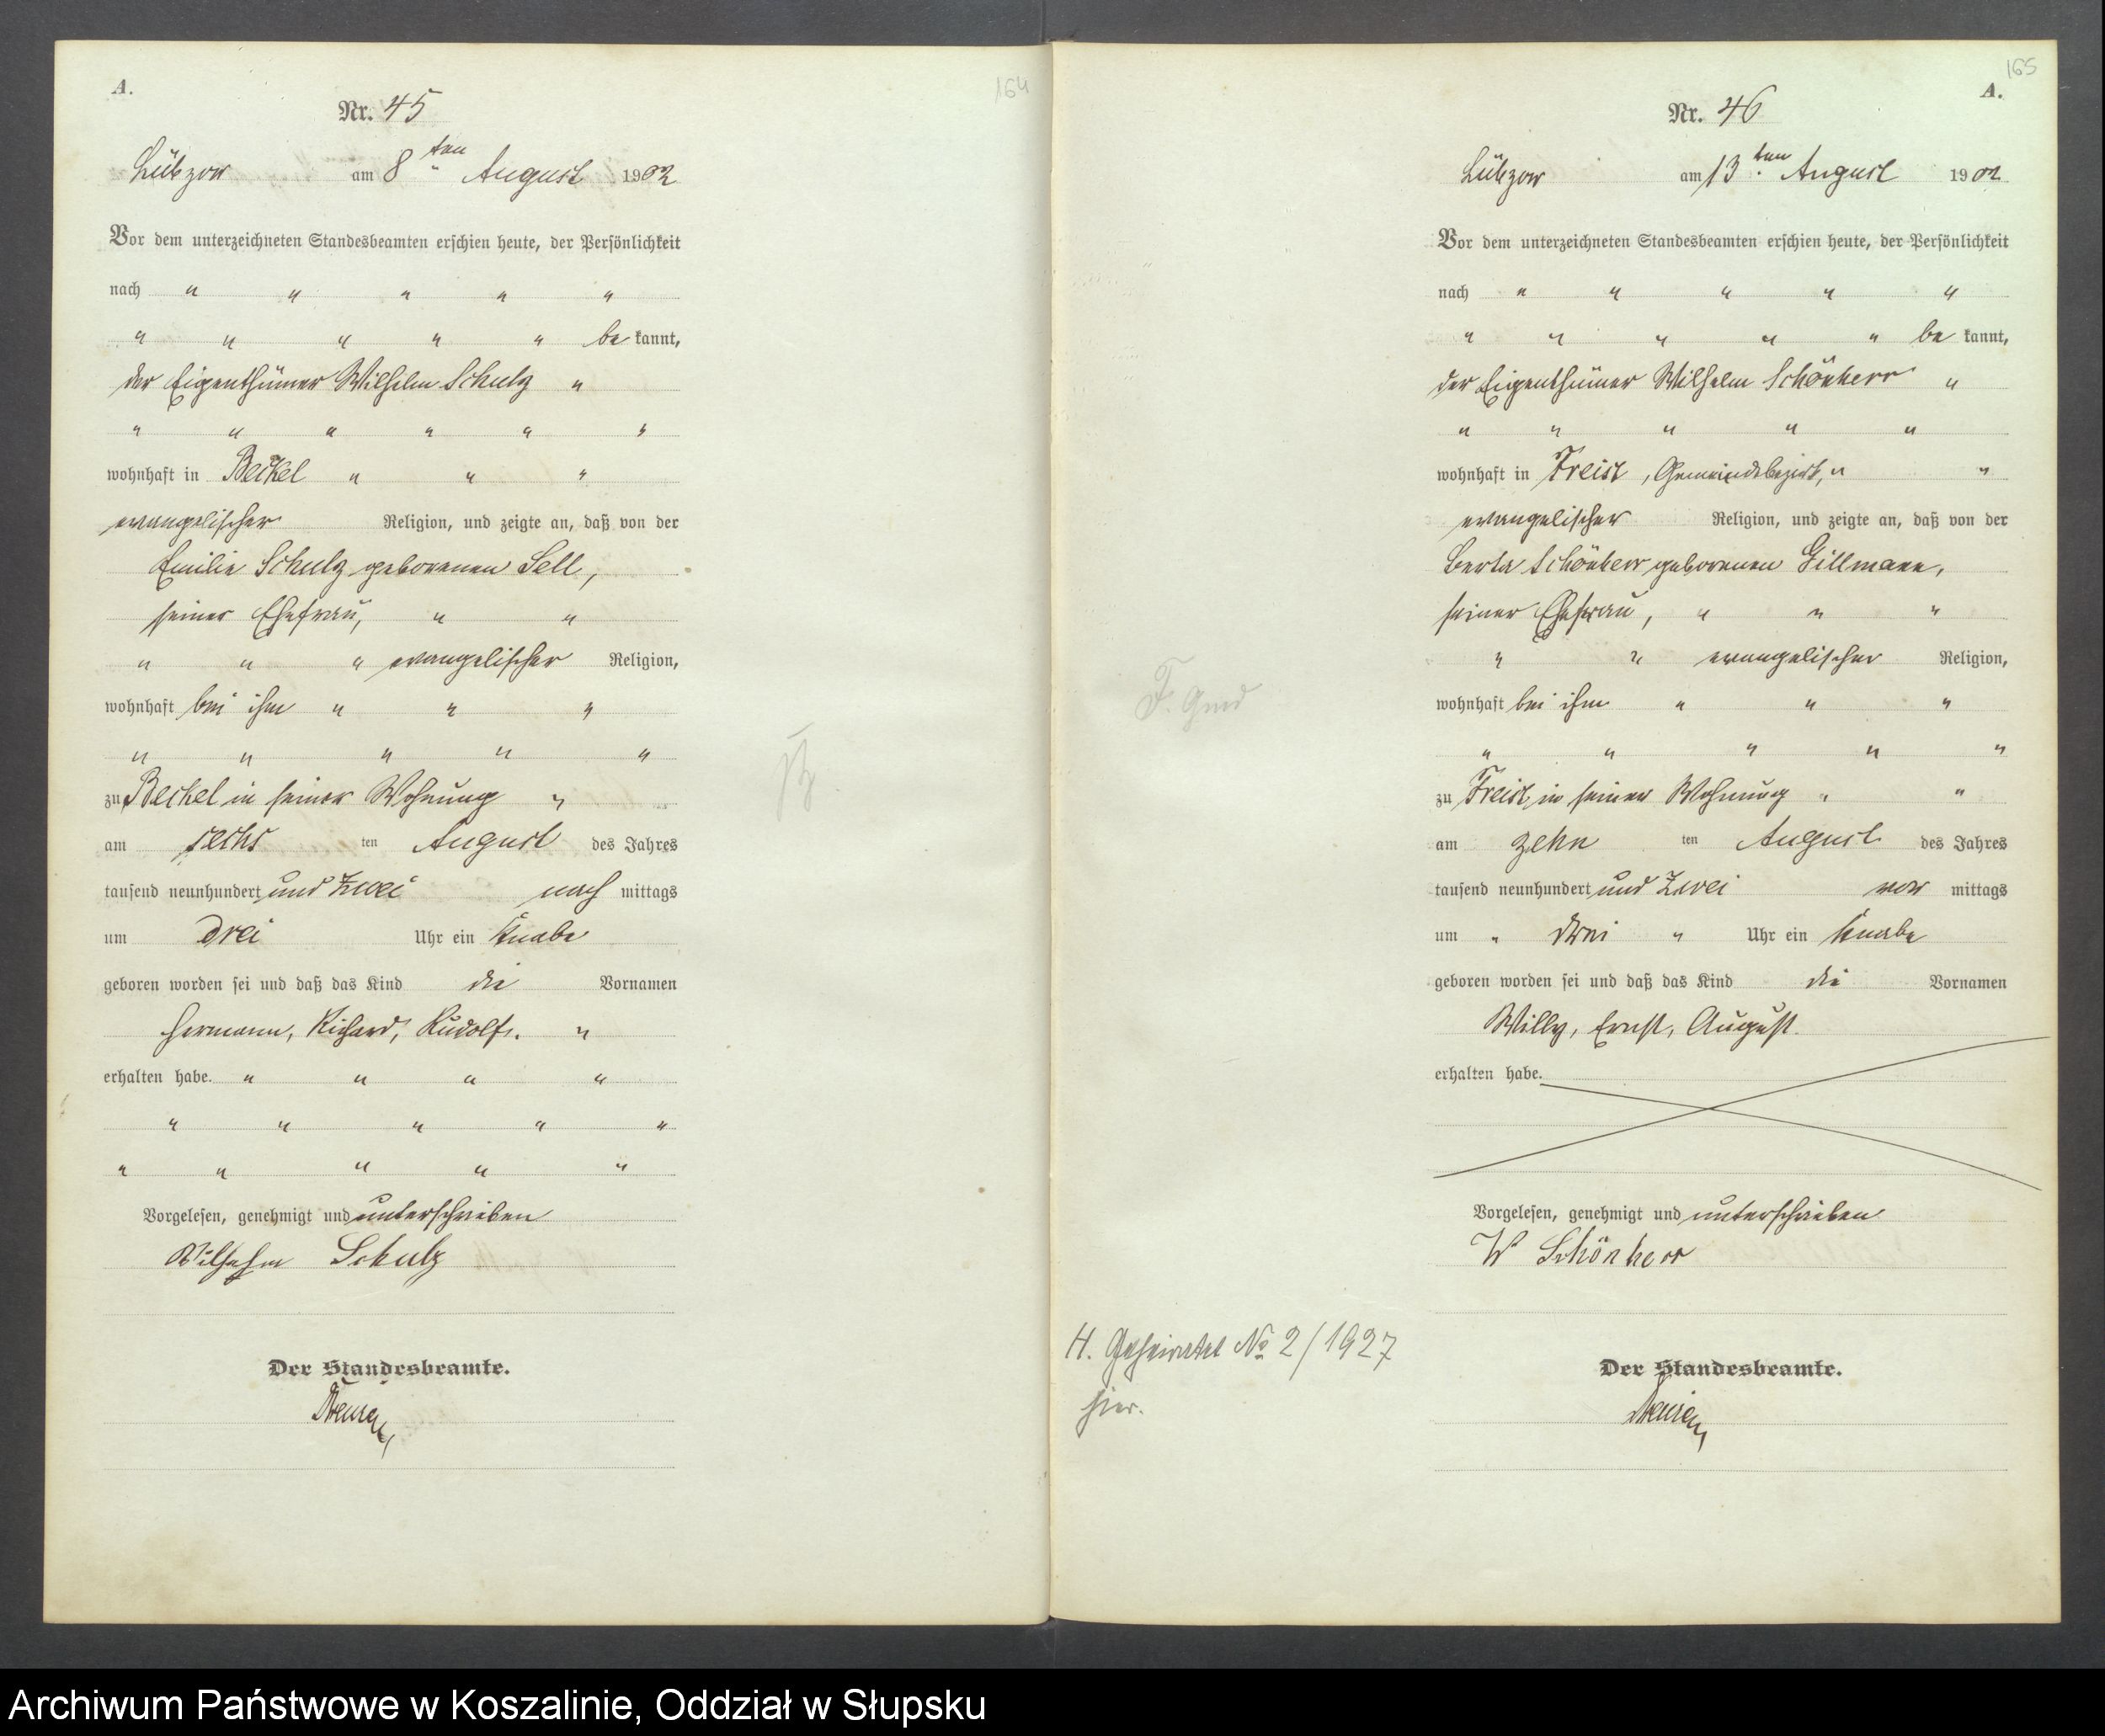 A.
164
Nr. 45
Lübzow am 8ten August 1902
Vor dem unterzeichneten Standesbeamten erschien heute, der Persönlichkeit
nach " " " " "
" " " " " be kannt,
der Eigenthümer Wilhelm Schulz "
" " " " " "
wohnhaft in Beckel " " "
evangelischer Religion, und zeigte an, daß von der
Emilie Schulz geborenen Sell,
seiner Ehefrau, " "
" " " evangelischer Religion,
wohnhaft bei ihm " " "
" " " " "
zu Beckel in seiner Wohnung "
am sechs ten August des Jahres
tausend neunhundert und zwei nach mittags
um drei Uhr ein Knabe
geboren worden sei und daß das Kind die Vornamen
Hermann, Richard, Rudolf. "
erhalten habe. " " " "
" " " " "
" " " " "
Vorgelesen, genehmigt und unterschrieben
Wilhelm Schulz
Der Standesbeamte.
165
A.
Nr. 46
Lübzow am 13ten August 1902
Vor dem unterzeichneten Standesbeamten erschien heute, der Persönlichkeit
nach " " " " "
" " " " " be kannt,
der Eigenthümer Wilhelm Schönherr "
" " " " "
wohnhaft in Freist, Gemeindebezirk, " "
evangelischer Religion, und zeigte an, daß von der
Berta Schönherr geborenen Gillmann,
seiner Ehefrau, " " "
" " evangelischer Religion,
wohnhaft bei ihm " " "
" " " " "
zu Freist in seiner Wohnung " "
am zehn ten August des Jahres
tausend neunhundert und zwei vor mittags
um " drei " Uhr ein Knabe
geboren worden sei und daß das Kind die Vornamen
Willy, Ernst, August.
erhalten habe.
Vorgelesen, genehmigt und unterschrieben
W Schönherr
Der Standesbeamte.
H. Geheiratet No 2/1927
hier.
Archiwum Państwowe w Koszalinie, Oddział w Słupsku